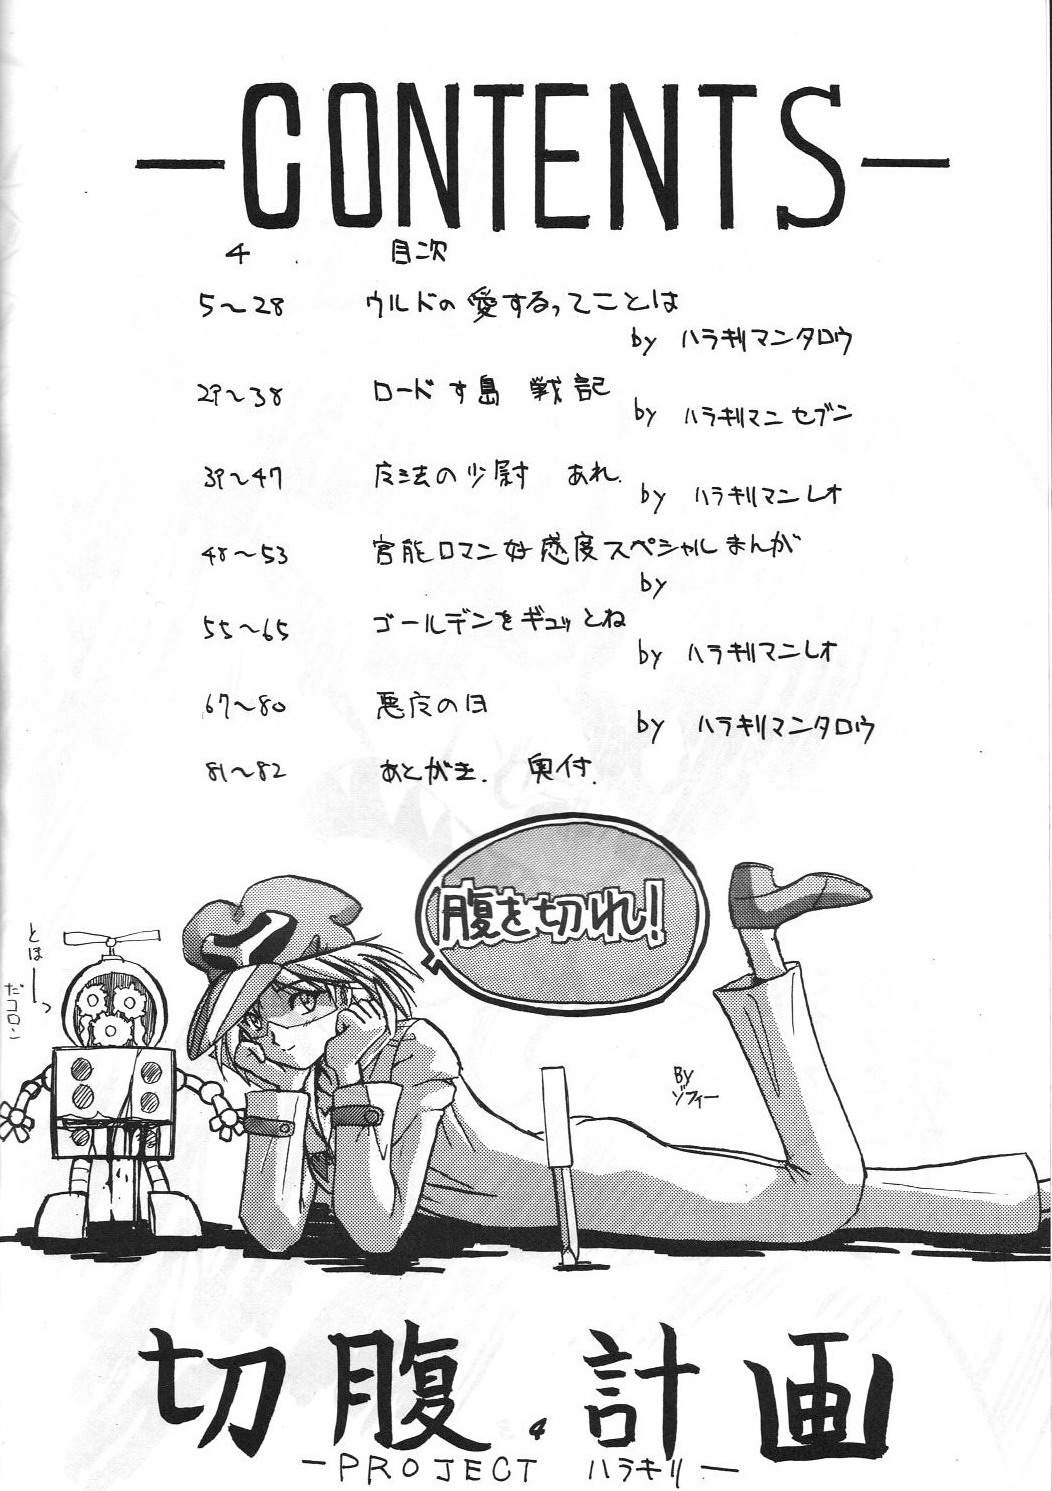 —CONTENTS—
4 目次
5〜28 ウルドの愛するってことは
by ハラキリマンタロウ
29〜38 ロードす島 戦記
by ハラキリマンセブン
39〜47 の少尉 あれ.
by ハラキリマンレオ
48〜53 官能ロマン好感度スペシャルまんが
by
55〜65 ゴールデンをギュッとね
by ハラキリマンレオ
67〜80 悪夜の日
by ハラキリマンタロウ
81〜82 あとがき. 奥付.
腹を切れ!
とほーっ
だコロン
BY
ゾフィー
切腹計画
4
—PROJECT ハラキリ—